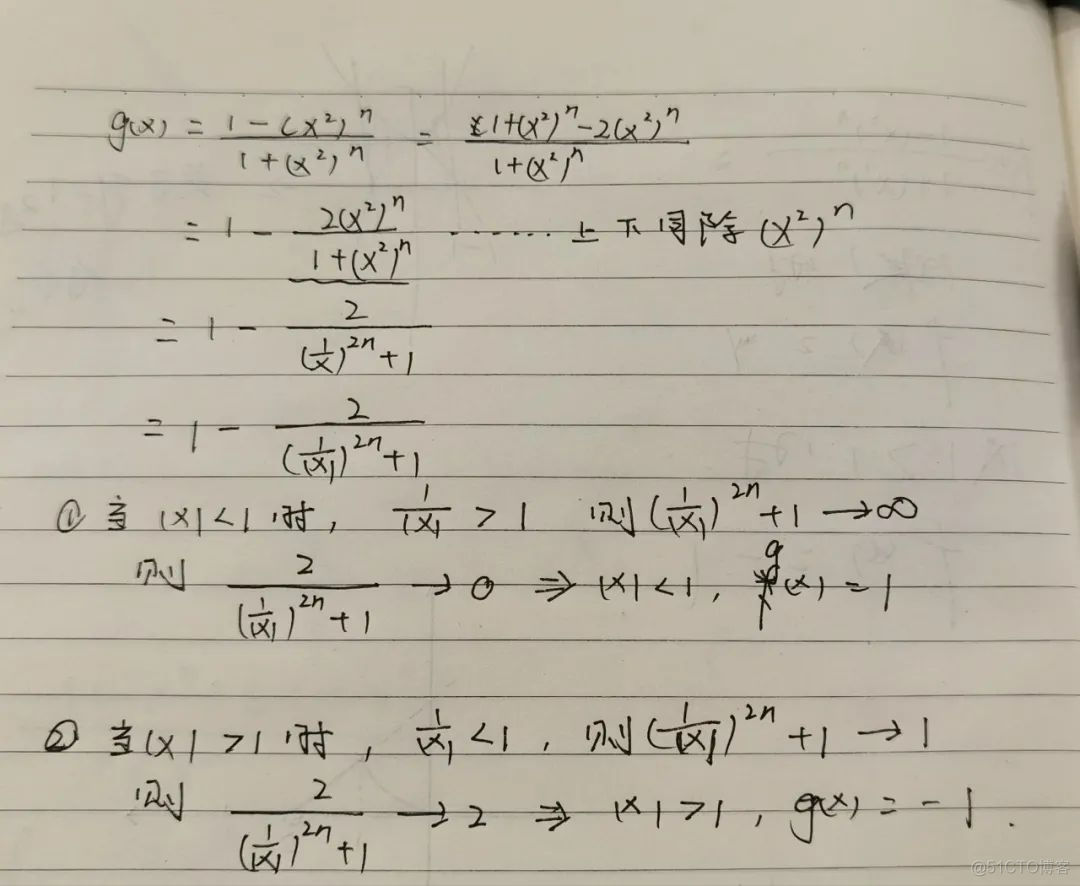 g(x) = \frac{1-(x^2)^n}{1+(x^2)^n} = \frac{1+(x^2)^n-2(x^2)^n}{1+(x^2)^n}
= 1 - \frac{2(x^2)^n}{1+(x^2)^n} ······· 上下同除 (x^2)^n
= 1 - \frac{2}{(\frac{1}{x})^{2n}+1}
= 1 - \frac{2}{(\frac{1}{|x|})^{2n}+1}
① 当 |x|<1 时, \frac{1}{|x|} > 1 则 (\frac{1}{|x|})^{2n}+1 → ∞
则 \frac{2}{(\frac{1}{|x|})^{2n}+1} → 0 ⇒ |x|<1, g(x) = 1
② 当 |x|>1 时, \frac{1}{|x|} <1, 则 (\frac{1}{|x|})^{2n}+1 → 1
则 \frac{2}{(\frac{1}{|x|})^{2n}+1} → 2 ⇒ |x|>1, g(x) = -1.
@51CTO博客